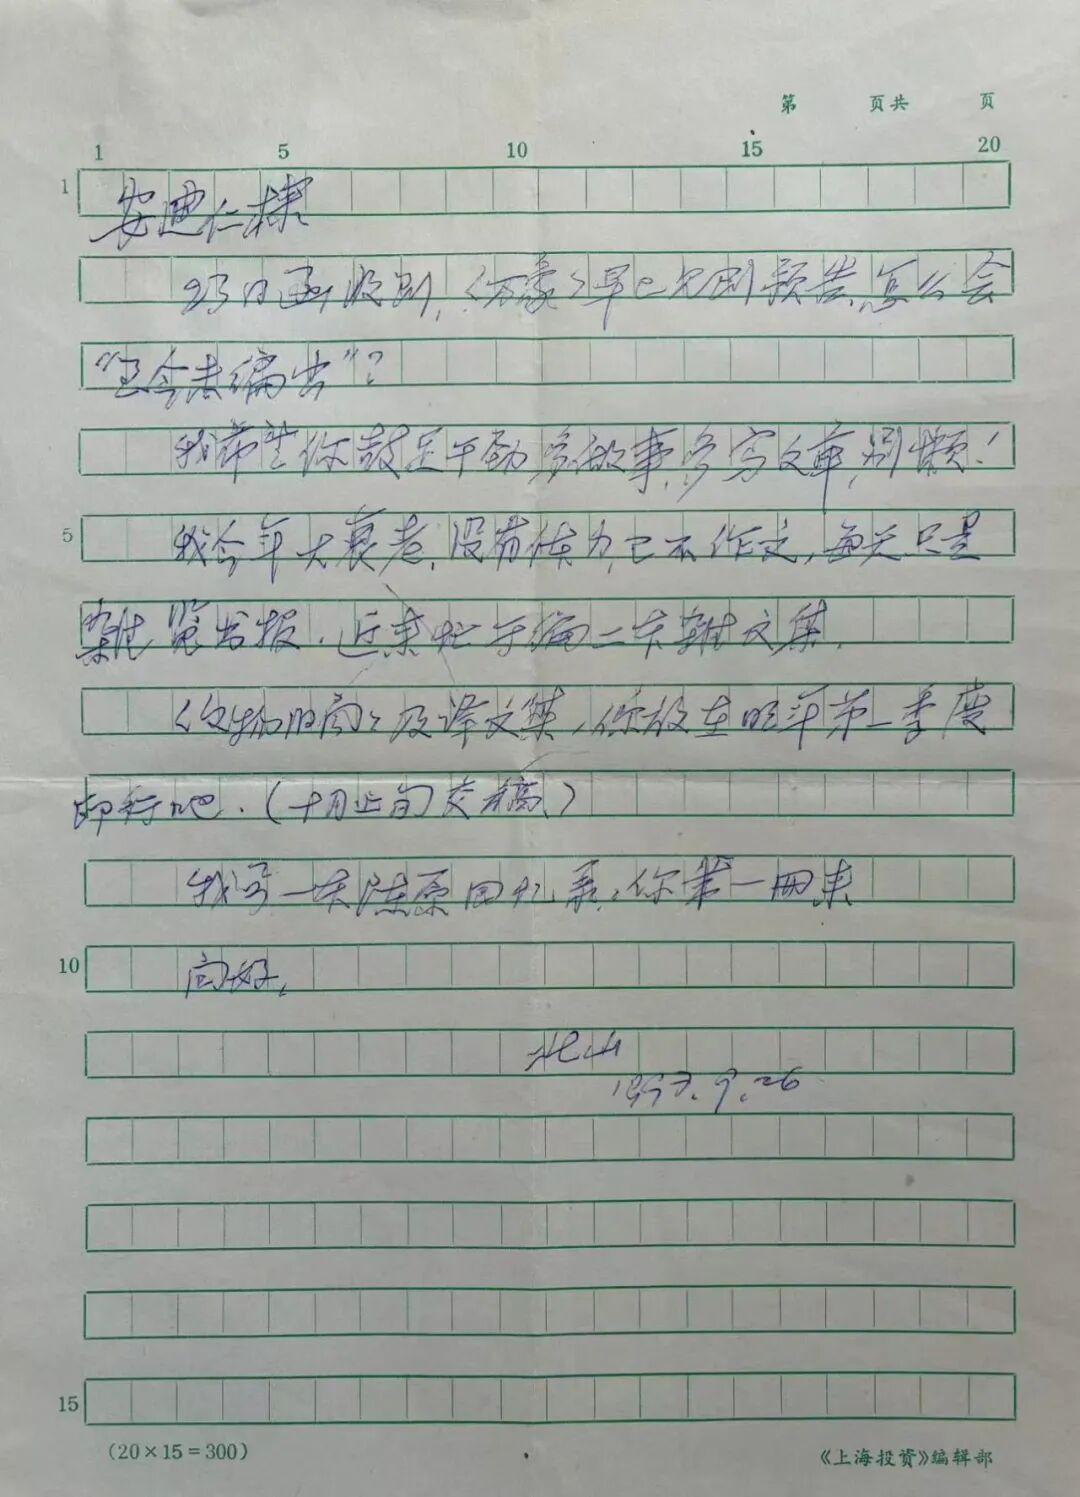 第 页共 页
1 5 10 15 20
1
安迪仁棣
23日函收到,《万象》早已见到预告,怎么会
“至今未编出”?
我希望你鼓足干劲,多做事,多写文章,别懒!
5
我今年大衰老,没有体力,已不作文,每天只是
杂览书报.近来忙于编二本杂文集.
及译文集,你放在明年第一季度
印行吧.(十月上旬交稿)
我写一本陈原回忆录,你第一册来
10
问好,
北山
1997.9.26
15
(20×15=300)
《上海投资》编辑部